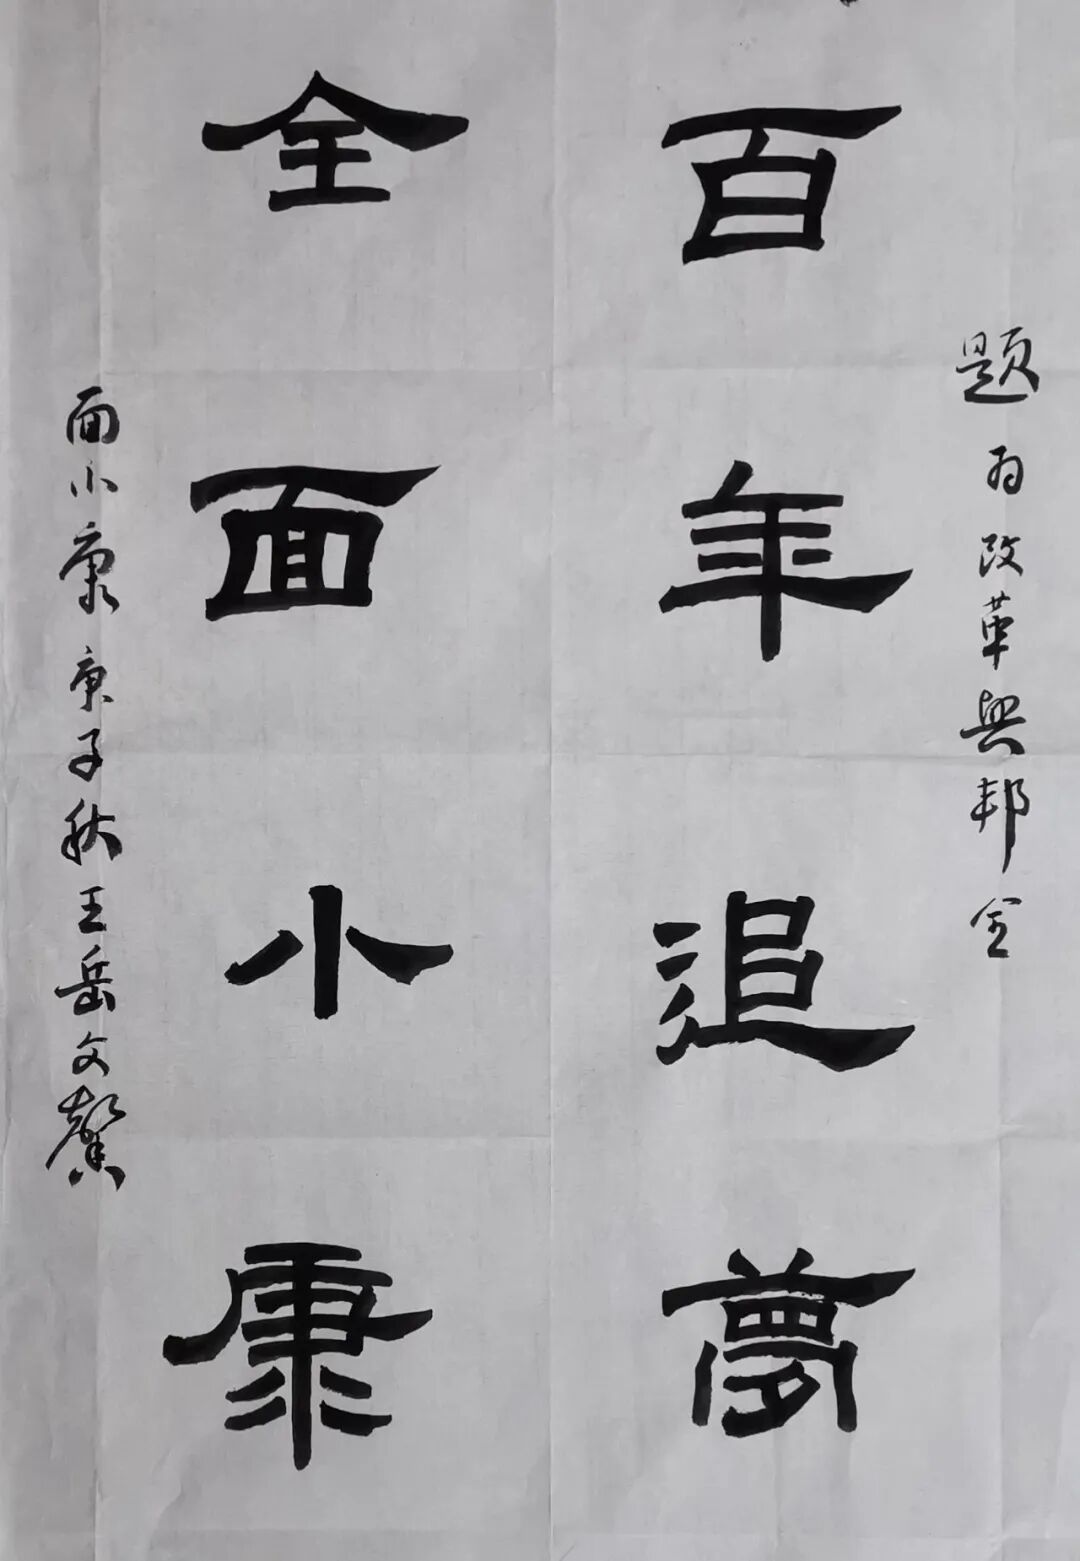 题为改革興邦全
百年追夢
全面小康
面小康庚子秋王岳文馨